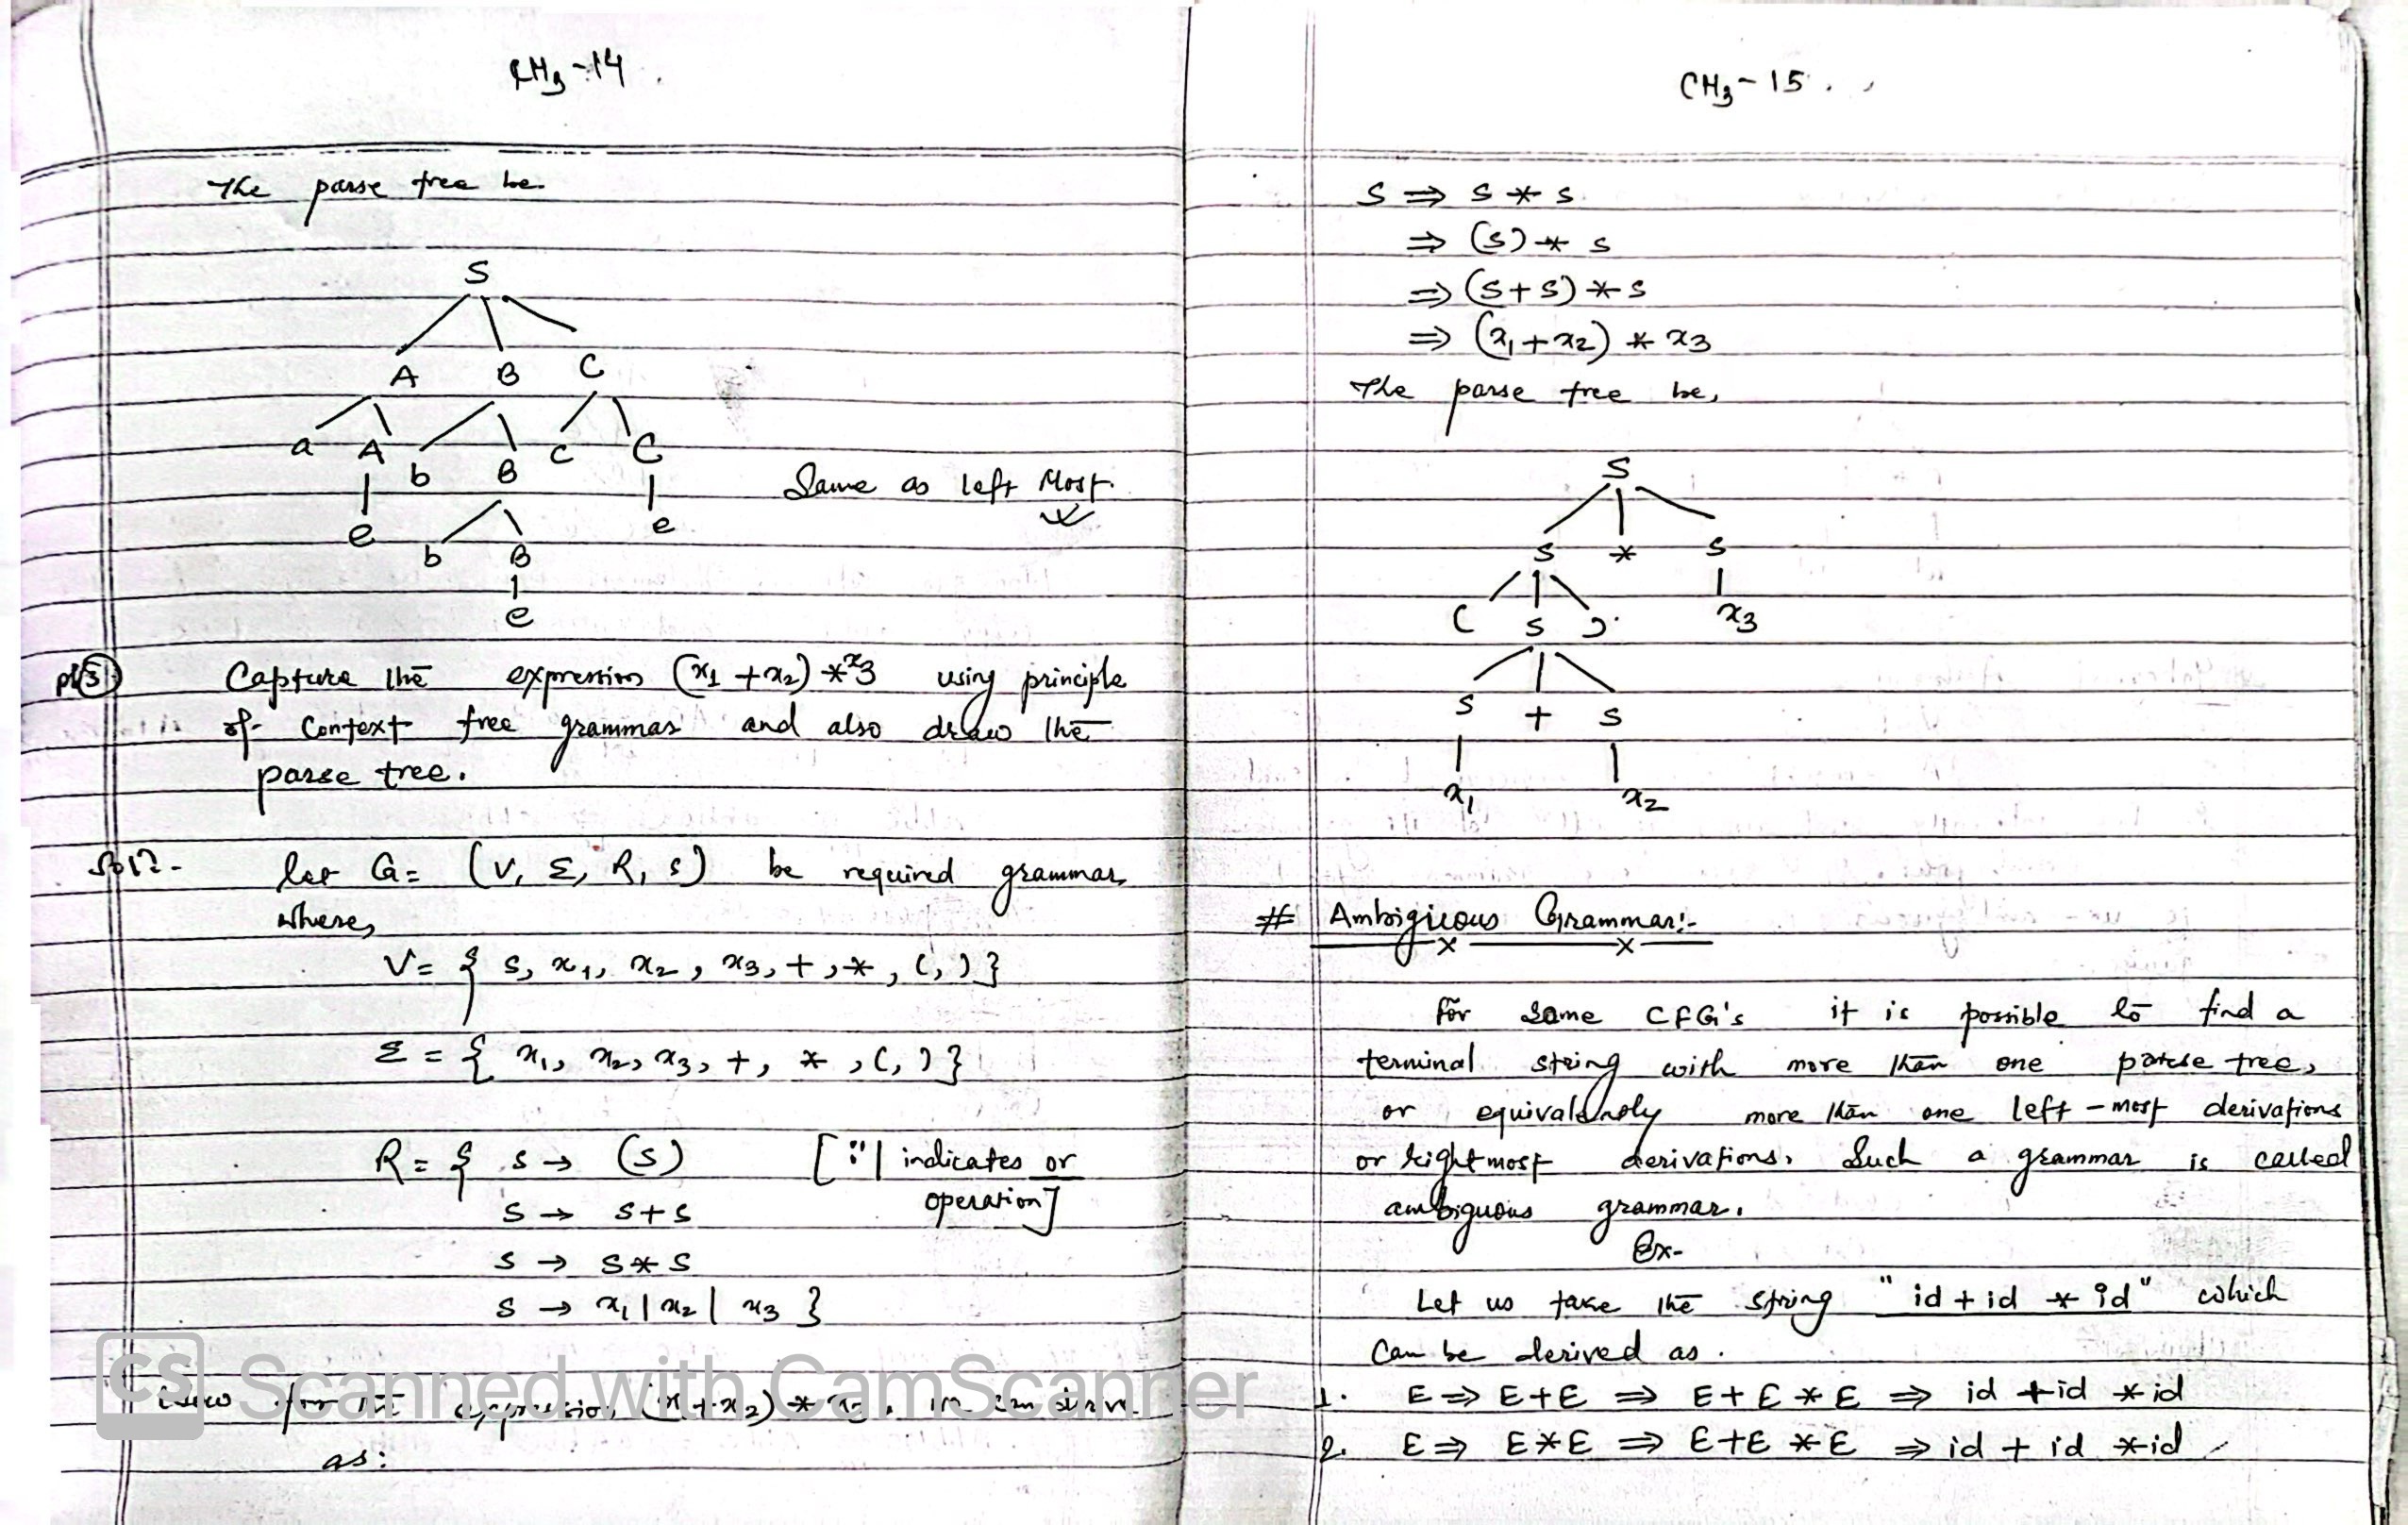 CH3-14.
The parse tree be
S
A B C
a A b B c C
e b B e
e
Same as left Most.
Capture the expression (x1 + x2) * x3 using principle
of Context free grammar and also draw the
parse tree.
Soln:- let G = (V, Σ, R, S) be required grammar,
where,
V = { S, x1, x2, x3, +, *, (, ) }
Σ = { x1, x2, x3, +, *, (, ) }
R = { S → (S) ["|" indicates or
operation]
S → S+S
S → S*S
S → x1 | x2 | x3 }
Now for the expression (x1+x2) * x3, we can derive
as:
CS Scanned with CamScanner
CH3-15.
S ⇒ S * S
⇒ (S) * S
⇒ (S+S) * S
⇒ (x1+x2) * x3
The parse tree be,
S
S * S
( S ) x3
S + S
x1 x2
# Ambiguous Grammar:-
For some CFG's it is possible to find a
terminal string with more than one parse tree,
or equivalently more than one left-most derivations
or rightmost derivations. Such a grammar is called
ambiguous grammar.
Ex-
Let us take the string "id + id * id" which
Can be derived as.
1. E ⇒ E+E ⇒ E+E*E ⇒ id + id * id
2. E ⇒ E*E ⇒ E+E*E ⇒ id + id * id